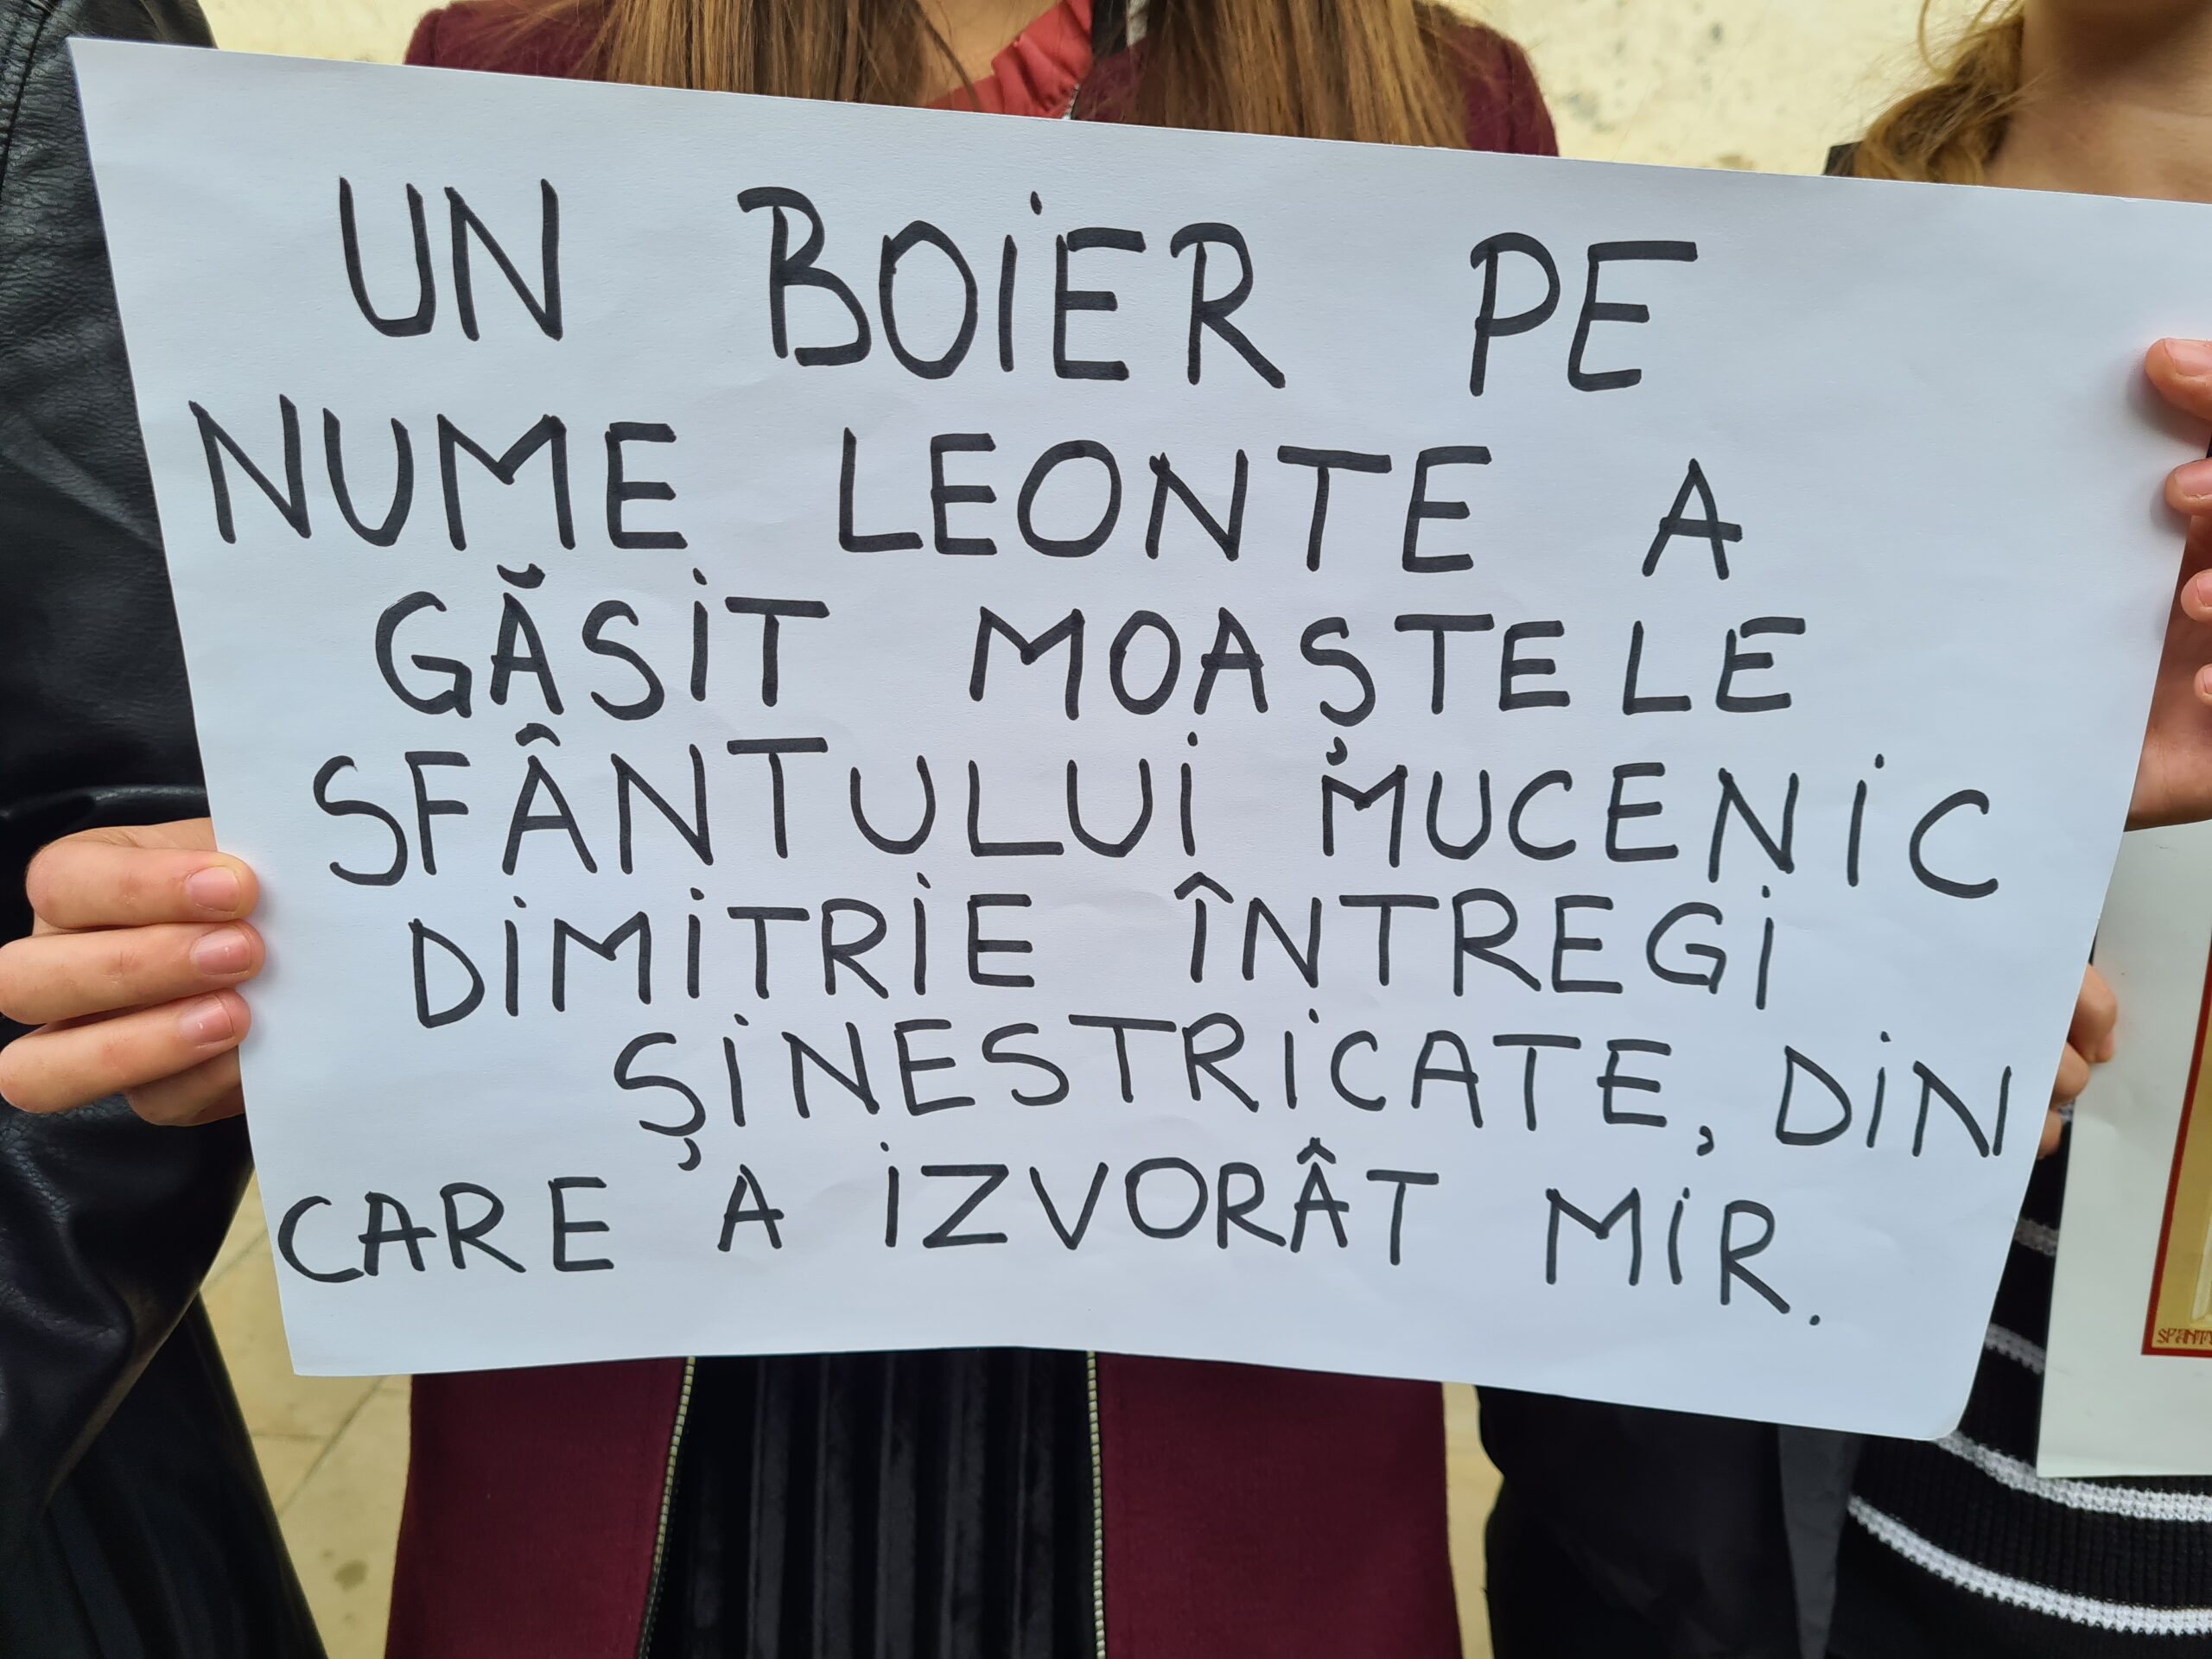 UN BOIER PE
NUME LEONTE A
GĂSIT MOAȘTELE
SFÂNTULUI MUCENIC
DIMITRIE ÎNTREGI
ȘI NESTRICATE, DIN
CARE A IZVORÂT MIR.